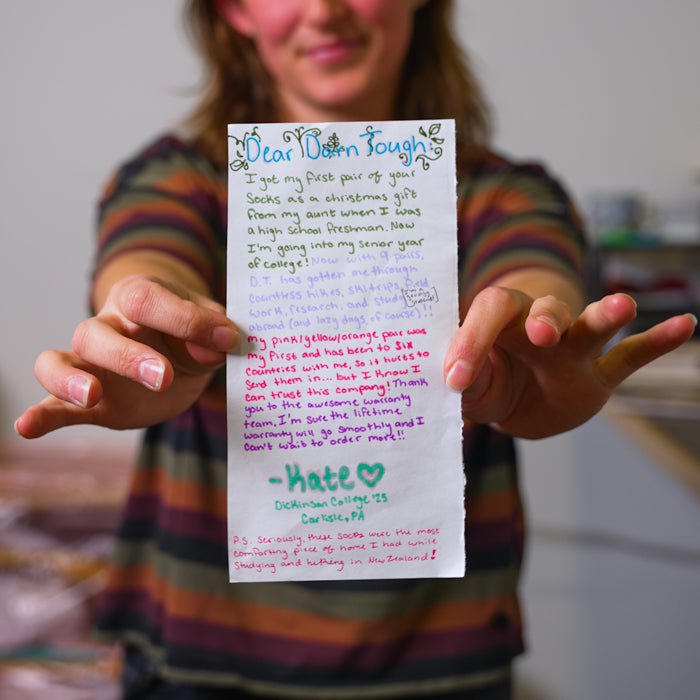 Dear Darn Tough:
I got my first pair of your
socks as a christmas gift
from my aunt when I was
a high school freshman. Now
I'm going into my senior year
of college! Now with 9 pairs,
D.T. has gotten me through
countless hikes, ski trips, field
work, research, and study
abroad (and lazy days, of course)!!
My pink/yellow/orange pair was
my first and has been to six
countries with me, so it hurts to
send them in... but I know I
can trust this company! Thank
you to the awesome warranty
team, I'm sure the lifetime
warranty will go smoothly and I
can't wait to order more!!
-Kate♡
Dickinson College '25
Carlisle, PA
P.S. Seriously, these socks were the most
comforting piece of home I had while
studying and hiking in New Zealand!